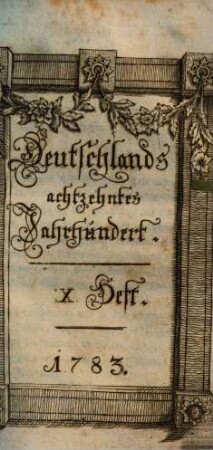 Deutschlands
achtzehntes
Jahrhundert.
X Heft.
1783.